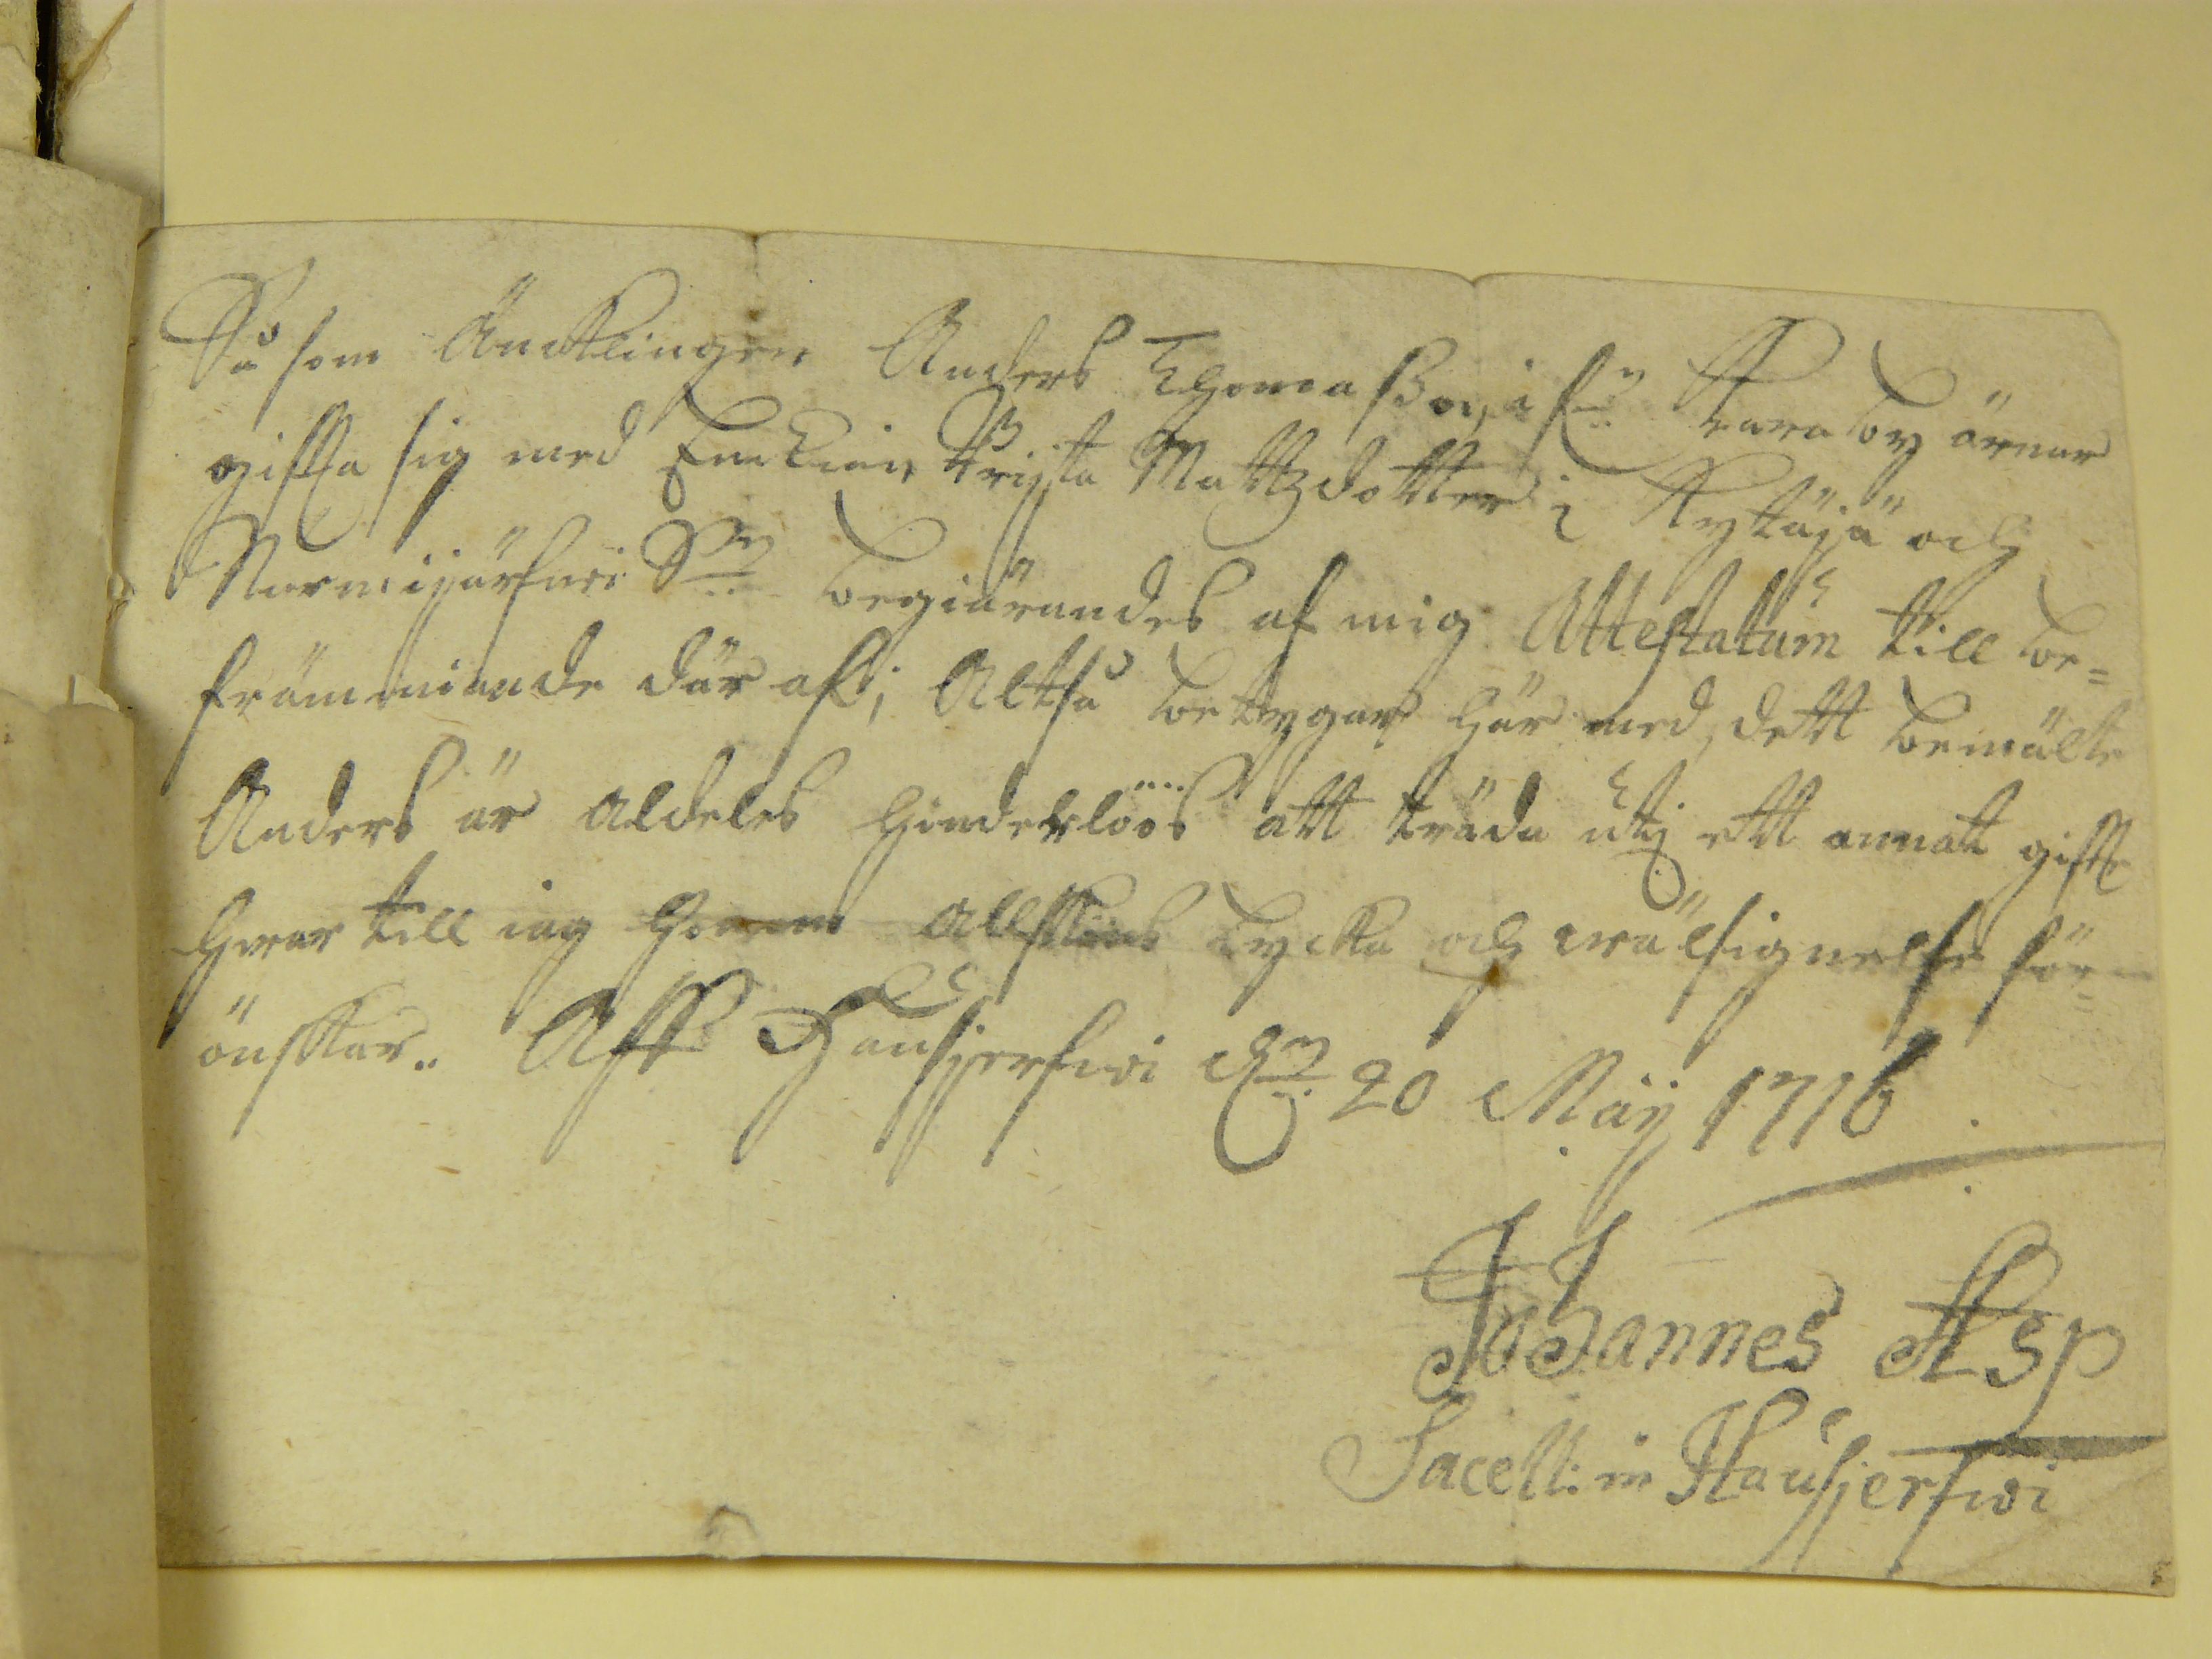 Så som Äncklingen Anders Thomasson i by ärnar
giffta sig med Enckian Brijta Mattzdotter i Kytäjä och
Nurmijärfwi S:n begiärandes af mig Attestatum till be=
främmiande där af; Altså betygar här med, dett bemälte
Anders är aldeles hinderlöös att träda utij ett annat gifte
hwar till iag honom allsköns lycka och wälsignelse för=
önskar.. Aff Hausjerfwi d:n 20 Maij 1716.
Johannes Asp
Sacell: in Hausjerfwi